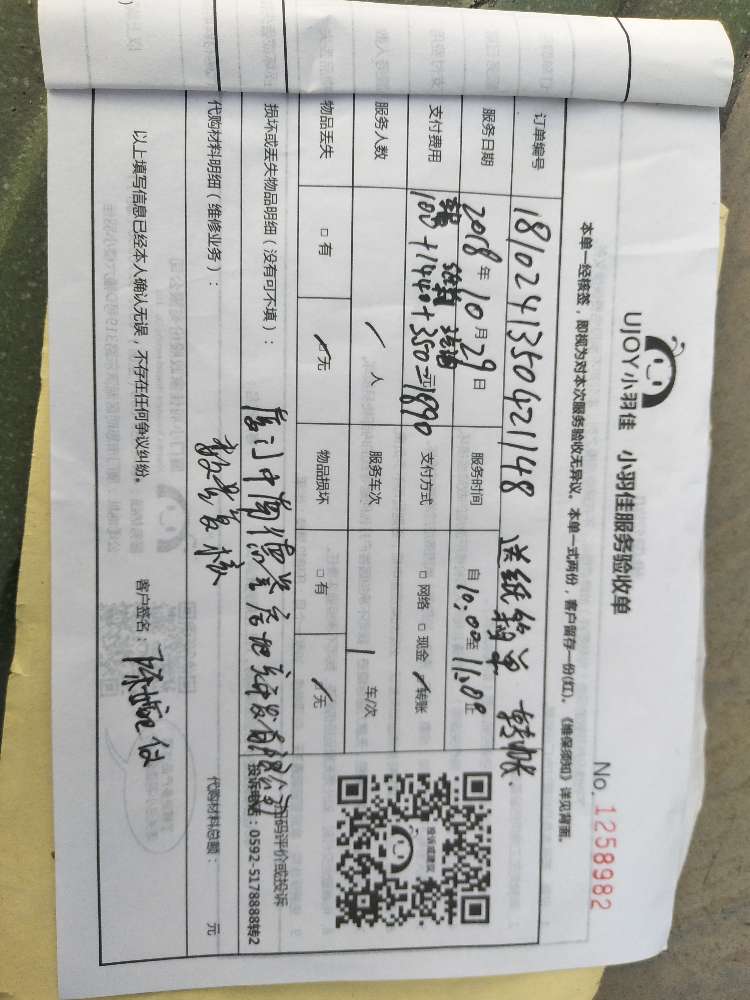 UJOY小羽佳 小羽佳服务验收单
No. 1258982
本单一经核签，即视为对本次服务验收无异议。本单一式两份，客户留存一份(红)。《维保须知》详见背面。
订单编号 1810241350421148 送纸箱单 转帐.
服务日期 2018年10月29日 服务时间 自10:00至11:00止
支付费用 100+1440+350=1890元 支付方式 □网络 □现金 ☑转账
服务人数 / 人 服务车次 1 车/次
物品丢失 □有 ☑无 物品损坏 □有 ☑无
损坏或丢失物品明细（没有可不填）：
厦门中 房地 开发有限公司
扫码评价或投诉
投诉电话：0592-5178888转2
投诉或建议
代购材料明细（维修业务）：
代购材料总额： 元
以上填写信息已经本人确认无误，不存在任何争议纠纷。
客户签名：